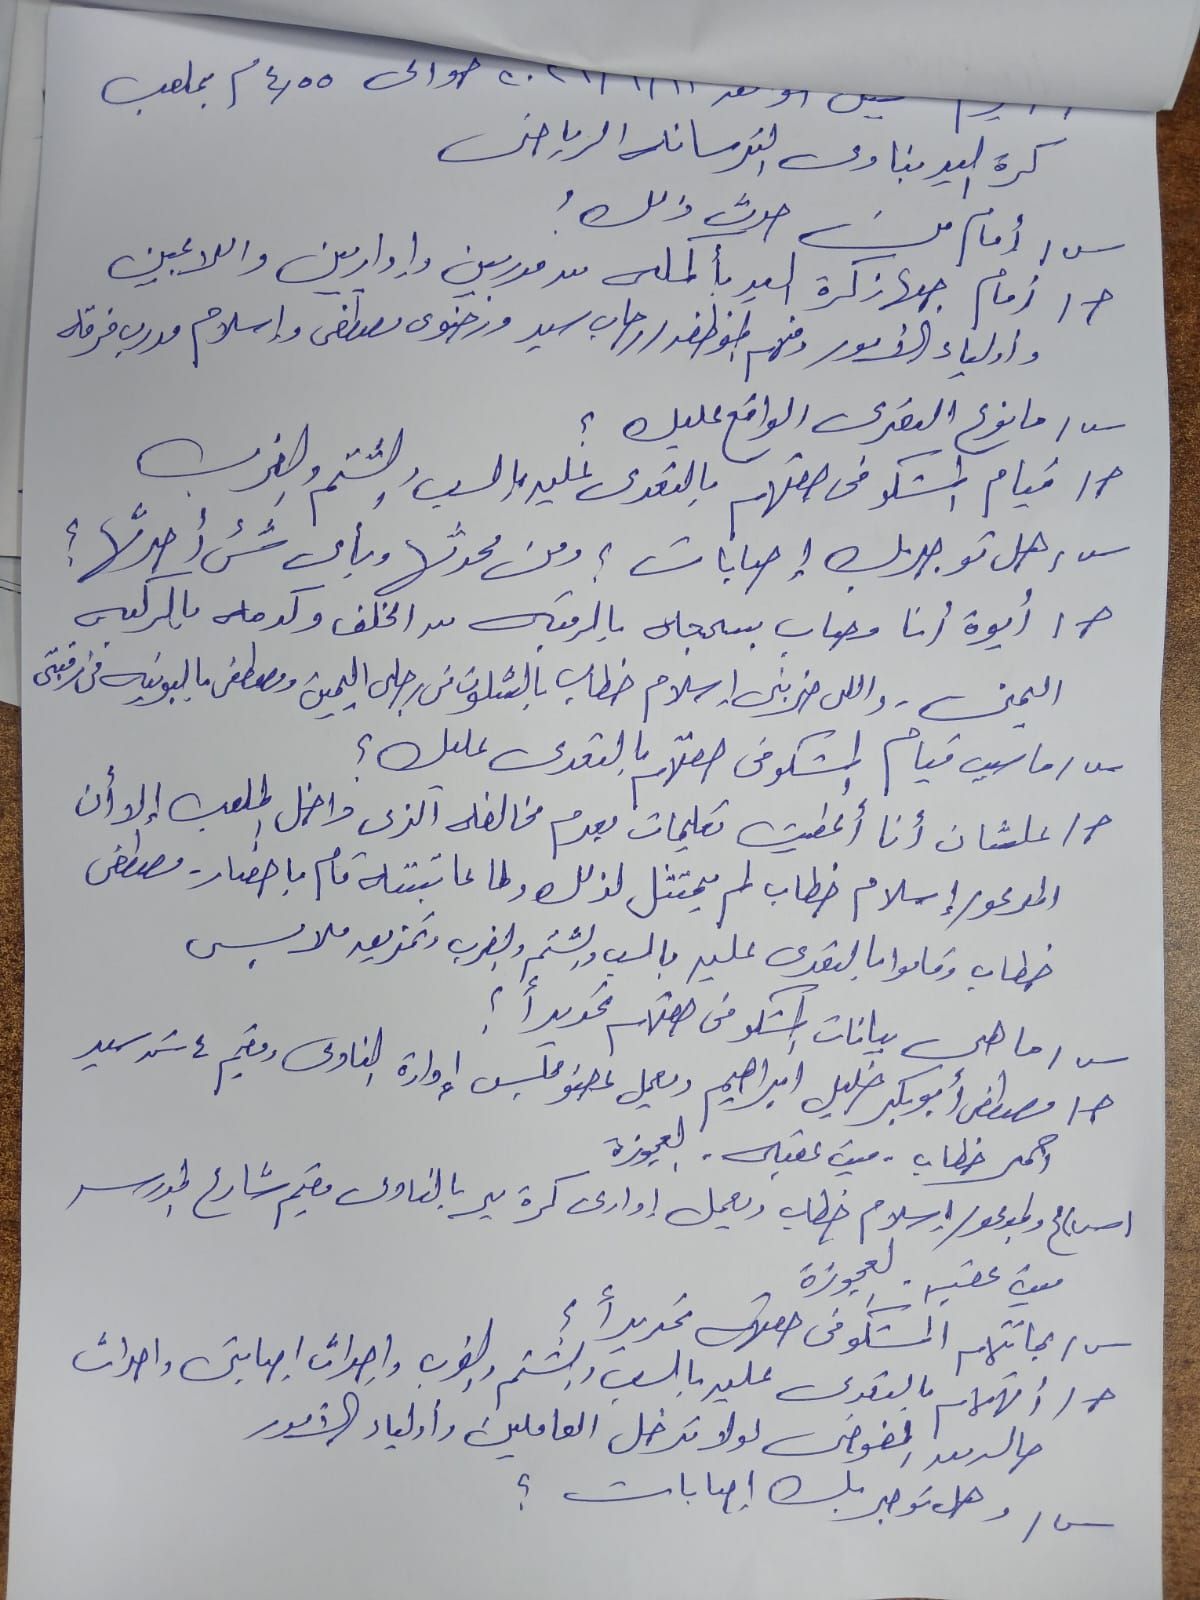 حوالى ٤,٥٥ م بملعب
كرة اليد بنادى الترسانه الرياضى
س/ أمام من حدث ذلك ؟
ج/ أمام جهاز كرة اليد بأكمله من مدربين وإداريين واللاعبين
وأولياء الأمور ومنهم الموظف/ رجاب سيد ورضوى مصطفى وإسلام مدرب فرقه
س/ ما نوع التعدى الواقع عليك ؟
ج/ قيام المشكو فى حقهم بالتعدى عليه بالسب والشتم والضرب
س/ هل توجد بك إصابات ؟ ومن محدثها وبأى شئ أحدثها ؟
ج/ أيوة أنا مصاب بسحجات بالرقبه من الخلف وكدمه بالركبه
اليمنى - واللى ضربنى إسلام خطاب بالشلوت فى رجلى اليمين ومصطفى بالبونيه فى رقبتى
س/ ما سبب قيام المشكو فى حقهم بالتعدى عليك ؟
ج/ علشان أنا أعطيت تعليمات بعدم مخالفه الزى داخل الملعب إلا أن
المدعو/ إسلام خطاب لم يمتثل لذلك ولما عاتبته قام باحضار - مصطفى
خطاب وقاموا بالتعدى عليه بالسب والشتم والضرب وتمزيق ملابسى
س/ ما هى بيانات المشكو فى حقهم تحديداً ؟
ج/ مصطفى أبوبكر خليل ابراهيم ويعمل عضو مجلس إدارة النادى ومقيم ٤ ش سيد
احمد خطاب - ميت عقبه - العجوزة
والمدعو/ إسلام خطاب ويعمل إدارى كرة يد بالنادى مقيم شارع المدرسه
ميت عقبه - العجوزة
س/ بما تتهم المشكو فى حقهم تحديداً ؟
ج/ أتهمهم بالتعدى عليه بالسب والشتم والضرب وإحداث إصابتى واحداث
حاله من الفوضى لولا تدخل العاملين وأولياء الأمور
س/ وهل توجد بك إصابات ؟